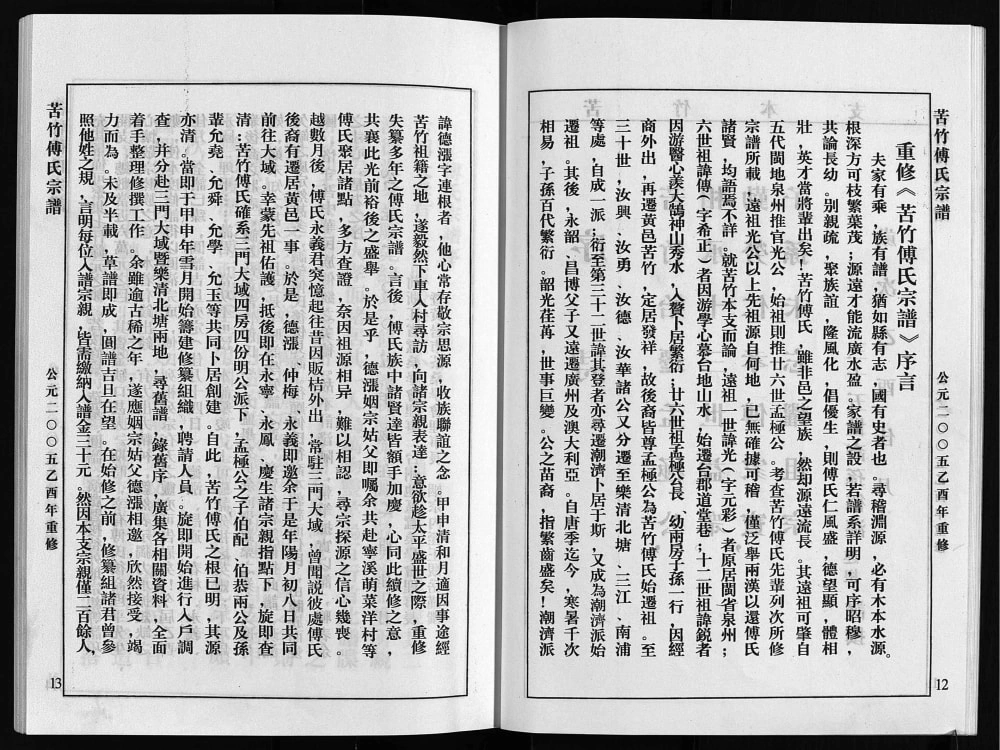 苦竹傅氏宗譜
公元二〇〇五乙酉年重修
12
重修《苦竹傅氏宗譜》序言
夫家有乘，族有譜，猶如縣有志，國有史者也。尋稽淵源，必有木本水源。
根深方可枝繁葉茂；源遠才能流廣水盈。家譜之設，若譜系詳明，可序昭穆，
共論長幼。別親疏，聚族誼，隆風化，倡優生，則傅氏仁風盛、德望顯，體相
壯，英才當將輩出矣！苦竹傅氏，雖非邑之望族，然却源遠流長。其遠祖可肇自
五代閩地泉州推官光公，始祖則推廿六世孟極公。考查苦竹傅氏先輩列次所修
宗譜所載，遠祖光公以上先祖源自何地，已無確據可稽，僅泛舉兩漢以還傅氏
諸賢，均語焉不詳。就苦竹本支而論，遠祖一世諱光（字元彩）者原居閩省泉州；
六世祖諱傳（字希正）者因游學心慕台地山水，始遷台郡道堂巷；十二世祖諱銳者
因游醫心羨大鵠神山秀水，入贅卜居繁衍；廿六世祖孟極公長、幼兩房子孫一行，因經
商外出，再遷黃邑苦竹，定居發祥，故後裔皆尊孟極公為苦竹傅氏始遷祖。至
三十世，汝興、汝勇、汝德、汝華諸公又分遷至樂清北塘、三江、南浦
等處，自成一派；衍至第三十二世諱其登者亦尋遷潮濟卜居于斯，又成為潮濟派始
遷祖。其後，永韶、昌博父子又遠遷廣州及澳大利亞。自唐季迄今，寒暑千次
相易，子孫百代繁衍。韶光荏苒，世事巨變。公之苗裔，指繁齒盛矣！潮濟派
諱德漲字連根者，他心常存敬宗思源，收族聯誼之念。甲申清和月適因事途經
苦竹祖籍之地，遂毅然下車入村尋訪，向諸宗親表達：意欲趁太平盛世之際，重修
失纂多年之傅氏宗譜。言後，傅氏族中諸賢達皆額手加慶，心同此續修之意，
共襄此光前裕後之盛舉。於是乎，德漲姻宗姑父即囑余共赴寧溪萌菜洋村等
傅氏聚居諸點，多方查證，奈因祖源相异，難以相認，尋宗探源之信心幾喪。
越數月後，傅氏永義君突憶起往昔因販桔外出，常駐三門大域，曾聞説彼處傅氏
後裔有遷居黃邑一事。於是，德漲、仲梅、永義即邀余于是年陽月初八日共同
前往大域。幸蒙先祖佑護，抵後即在永寧、永鳳、慶生諸宗親指點下，旋即查
清：苦竹傅氏確系三門大域四房四份明公派下，孟極公之子伯配、伯恭兩公及孫
輩允堯、允舜、允學、允玉等共同卜居創建。自此，苦竹傅氏之根已明，其源
亦清。當即于甲申年雪月開始籌建修纂組織，聘請人員。旋即開始進行入戶調
查，并分赴三門大域暨樂清北塘兩地，尋舊譜，錄舊序，廣集各相關資料，全面
着手整理修撰工作。余雖逾古稀之年，遂應姻宗姑父德漲相邀，欣然接受，竭
力而為。未及半載，草譜即成，圓譜吉旦在望。在始修之前，修纂組諸君曾參
照他姓之規，言明每位入譜宗親，皆需繳納入譜金三十元。然因本支宗親僅二百餘人，
苦竹傅氏宗譜
公元二〇〇五乙酉年重修
13